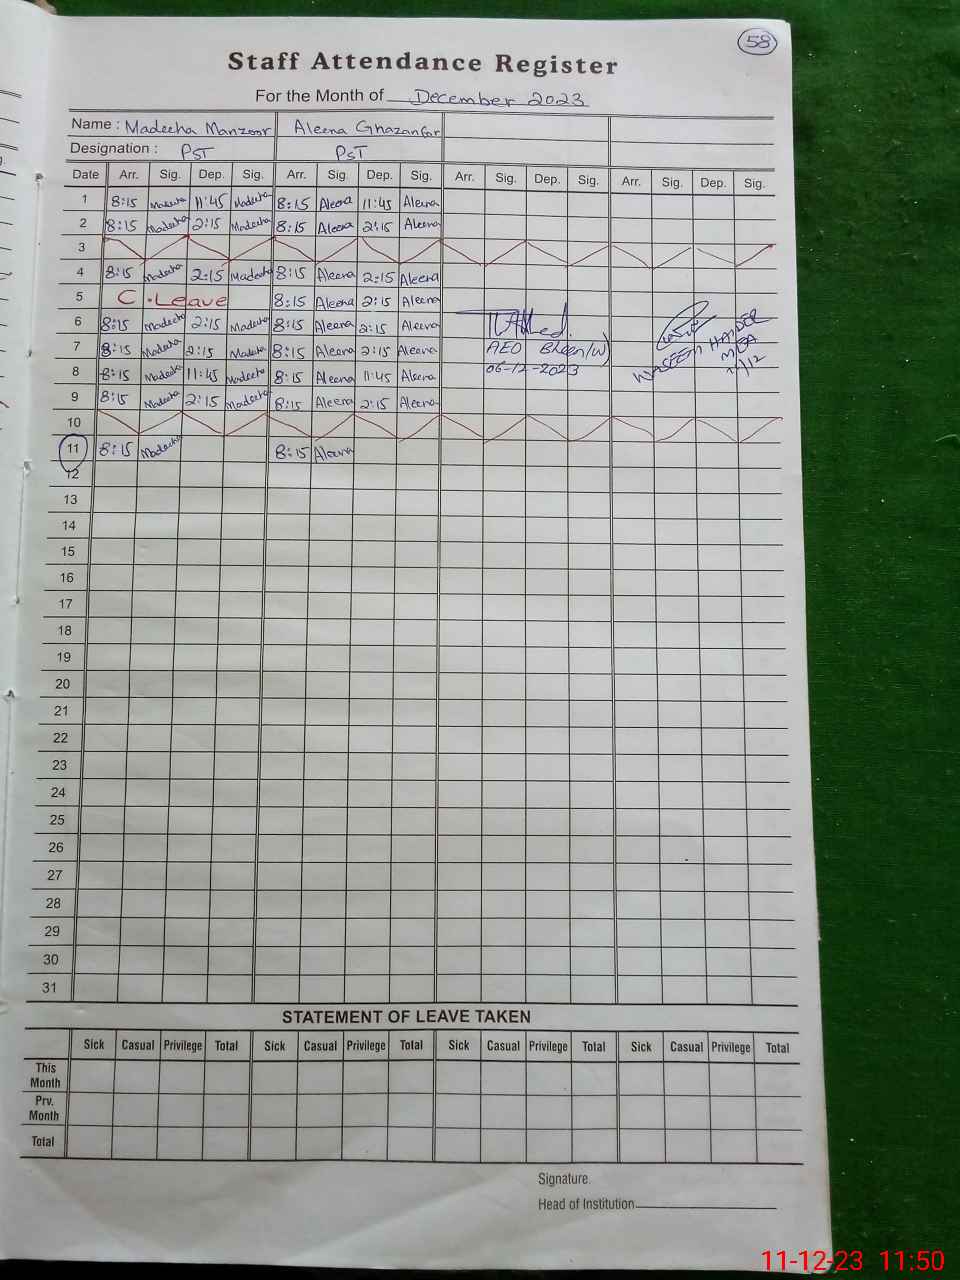 58
Staff Attendance Register
For the Month of December 2023
Name : Madeeha Manzoor Aleena Ghazanfar
Designation : PST PST
Date Arr. Sig. Dep. Sig. Arr. Sig. Dep. Sig. Arr. Sig. Dep. Sig. Arr. Sig. Dep. Sig.
1 8:15 Madeeha 11:45 Madeeha 8:15 Aleena 11:45 Aleena
2 8:15 Madeeha 2:15 Madeeha 8:15 Aleena 2:15 Aleena
3
4 8:15 Madeeha 2:15 Madeeha 8:15 Aleena 2:15 Aleena
5 C. Leave 8:15 Aleena 2:15 Aleena
6 8:15 Madeeha 2:15 Madeeha 8:15 Aleena 2:15 Aleena
7 8:15 Madeeha 2:15 Madeeha 8:15 Aleena 2:15 Aleena AEO WASEEM HAIDER
8 8:15 Madeeha 11:45 Madeeha 8:15 Aleena 11:45 Aleena 06-12-2023 MEA
9 8:15 Madeeha 2:15 Madeeha 8:15 Aleena 2:15 Aleena
10
11 8:15 Madeeha 8:15 Aleena
12
13
14
15
16
17
18
19
20
21
22
23
24
25
26
27
28
29
30
31
STATEMENT OF LEAVE TAKEN
Sick Casual Privilege Total Sick Casual Privilege Total Sick Casual Privilege Total Sick Casual Privilege Total
This
Month
Prv.
Month
Total
Signature.
Head of Institution
11-12-23 11:50